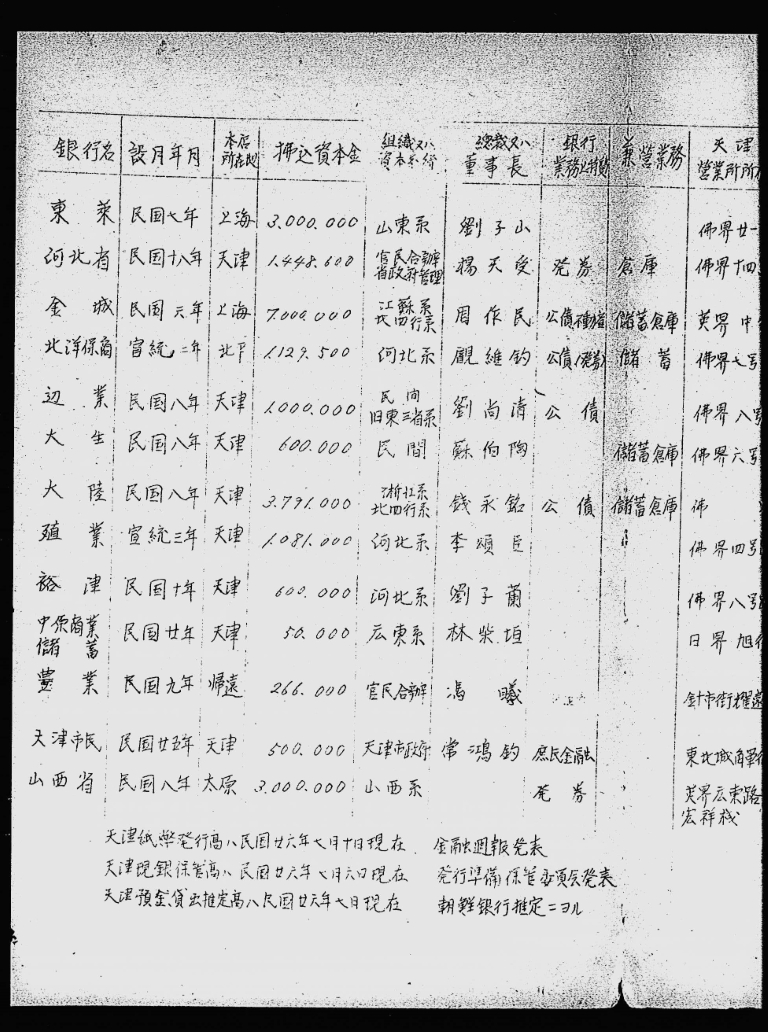 銀行名 設月年月 本店所在地 拂込資本金 組織又ハ資本系統 總裁又ハ董事長 銀行業務上特 兼営業務 天津営業所所
東萊 民国七年 上海 3.000.000 山東系 劉子山 佛界廿一
河北省 民国十八年 天津 1.448.600 官民合辦省政府管理 楊天受 発券 倉庫 佛界十四
金城 民国六年 上海 7.000.000 江蘇系北四行系 周作民 公債 儲蓄倉庫 英界中
北洋保商 宣統二年 北平 1.129.500 河北系 維鈞 公債(発券) 儲蓄 佛界七号
辺業 民国八年 天津 1.000.000 民间旧東三省系 劉尚清 公債 佛界八号
大生 民国八年 天津 600.000 民間 蘇伯陶 儲蓄倉庫 佛界六号
大陸 民国八年 天津 3.791.000 浙江系北四行系 錢永銘 公債 儲蓄倉庫 佛
殖業 宣統三年 天津 1.081.000 河北系 李頌臣 佛界四号
裕津 民国十年 天津 600.000 河北系 劉子蘭 佛界八号
中原商業儲蓄 民国廿年 天津 50.000 広東系 林紫垣 日界旭街
豊業 民国九年 帰遠 266.000 官民合辦 馮曦 針市街耀遠
天津市民 民国廿五年 天津 500.000 天津市政府 常鴻鈞 庶民金融 東北城角
山西省 民国八年 太原 3.000.000 山西系 発券 英界広東路
宏祥栈
天津紙幣発行高ハ民国廿六年七月十日現在 金融週報発表
天津現銀保管高ハ民国廿六年七月六日現在 発行準備保管委員会発表
天津預金貸出推定高ハ民国廿六年七月現在 朝鮮銀行推定ニヨル